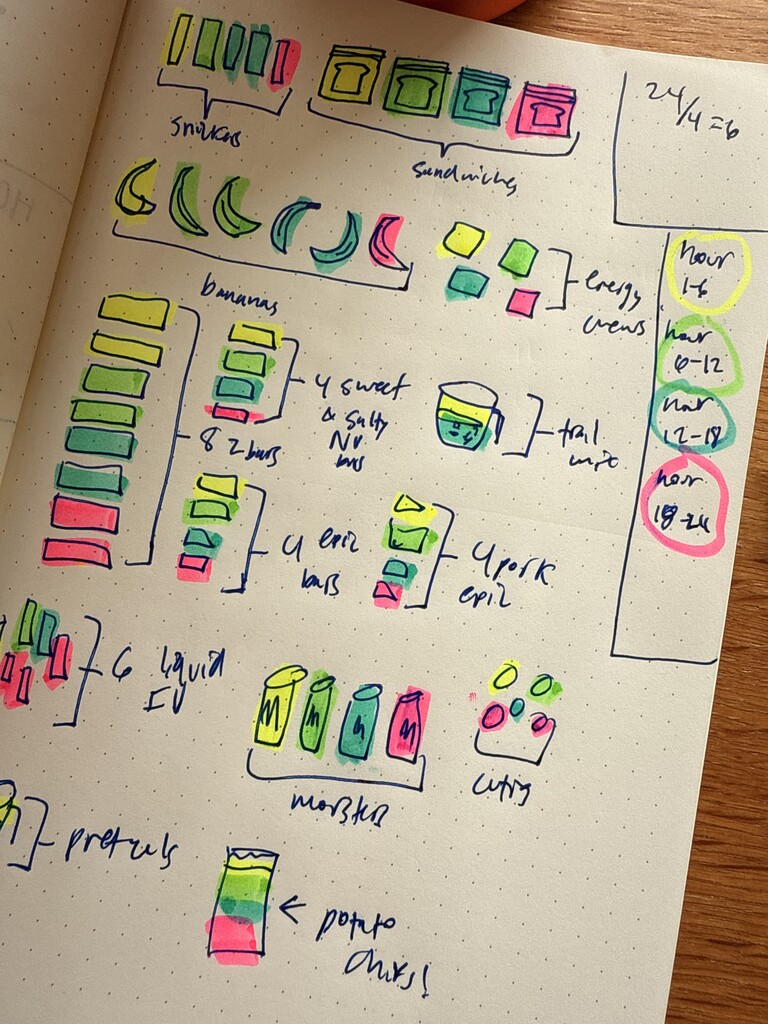 24/4=6
snickers
sandwiches
bananas
energy
chews
hour
1-6
hour
6-12
hour
12-18
hour
18-24
8 z bars
4 sweet
& salty
NV
bars
trail
mix
4 epic
bars
4 pork
epic
6 liquid
IV
M
M
M
M
monsters
cutie
pretzels
← potato
chips!